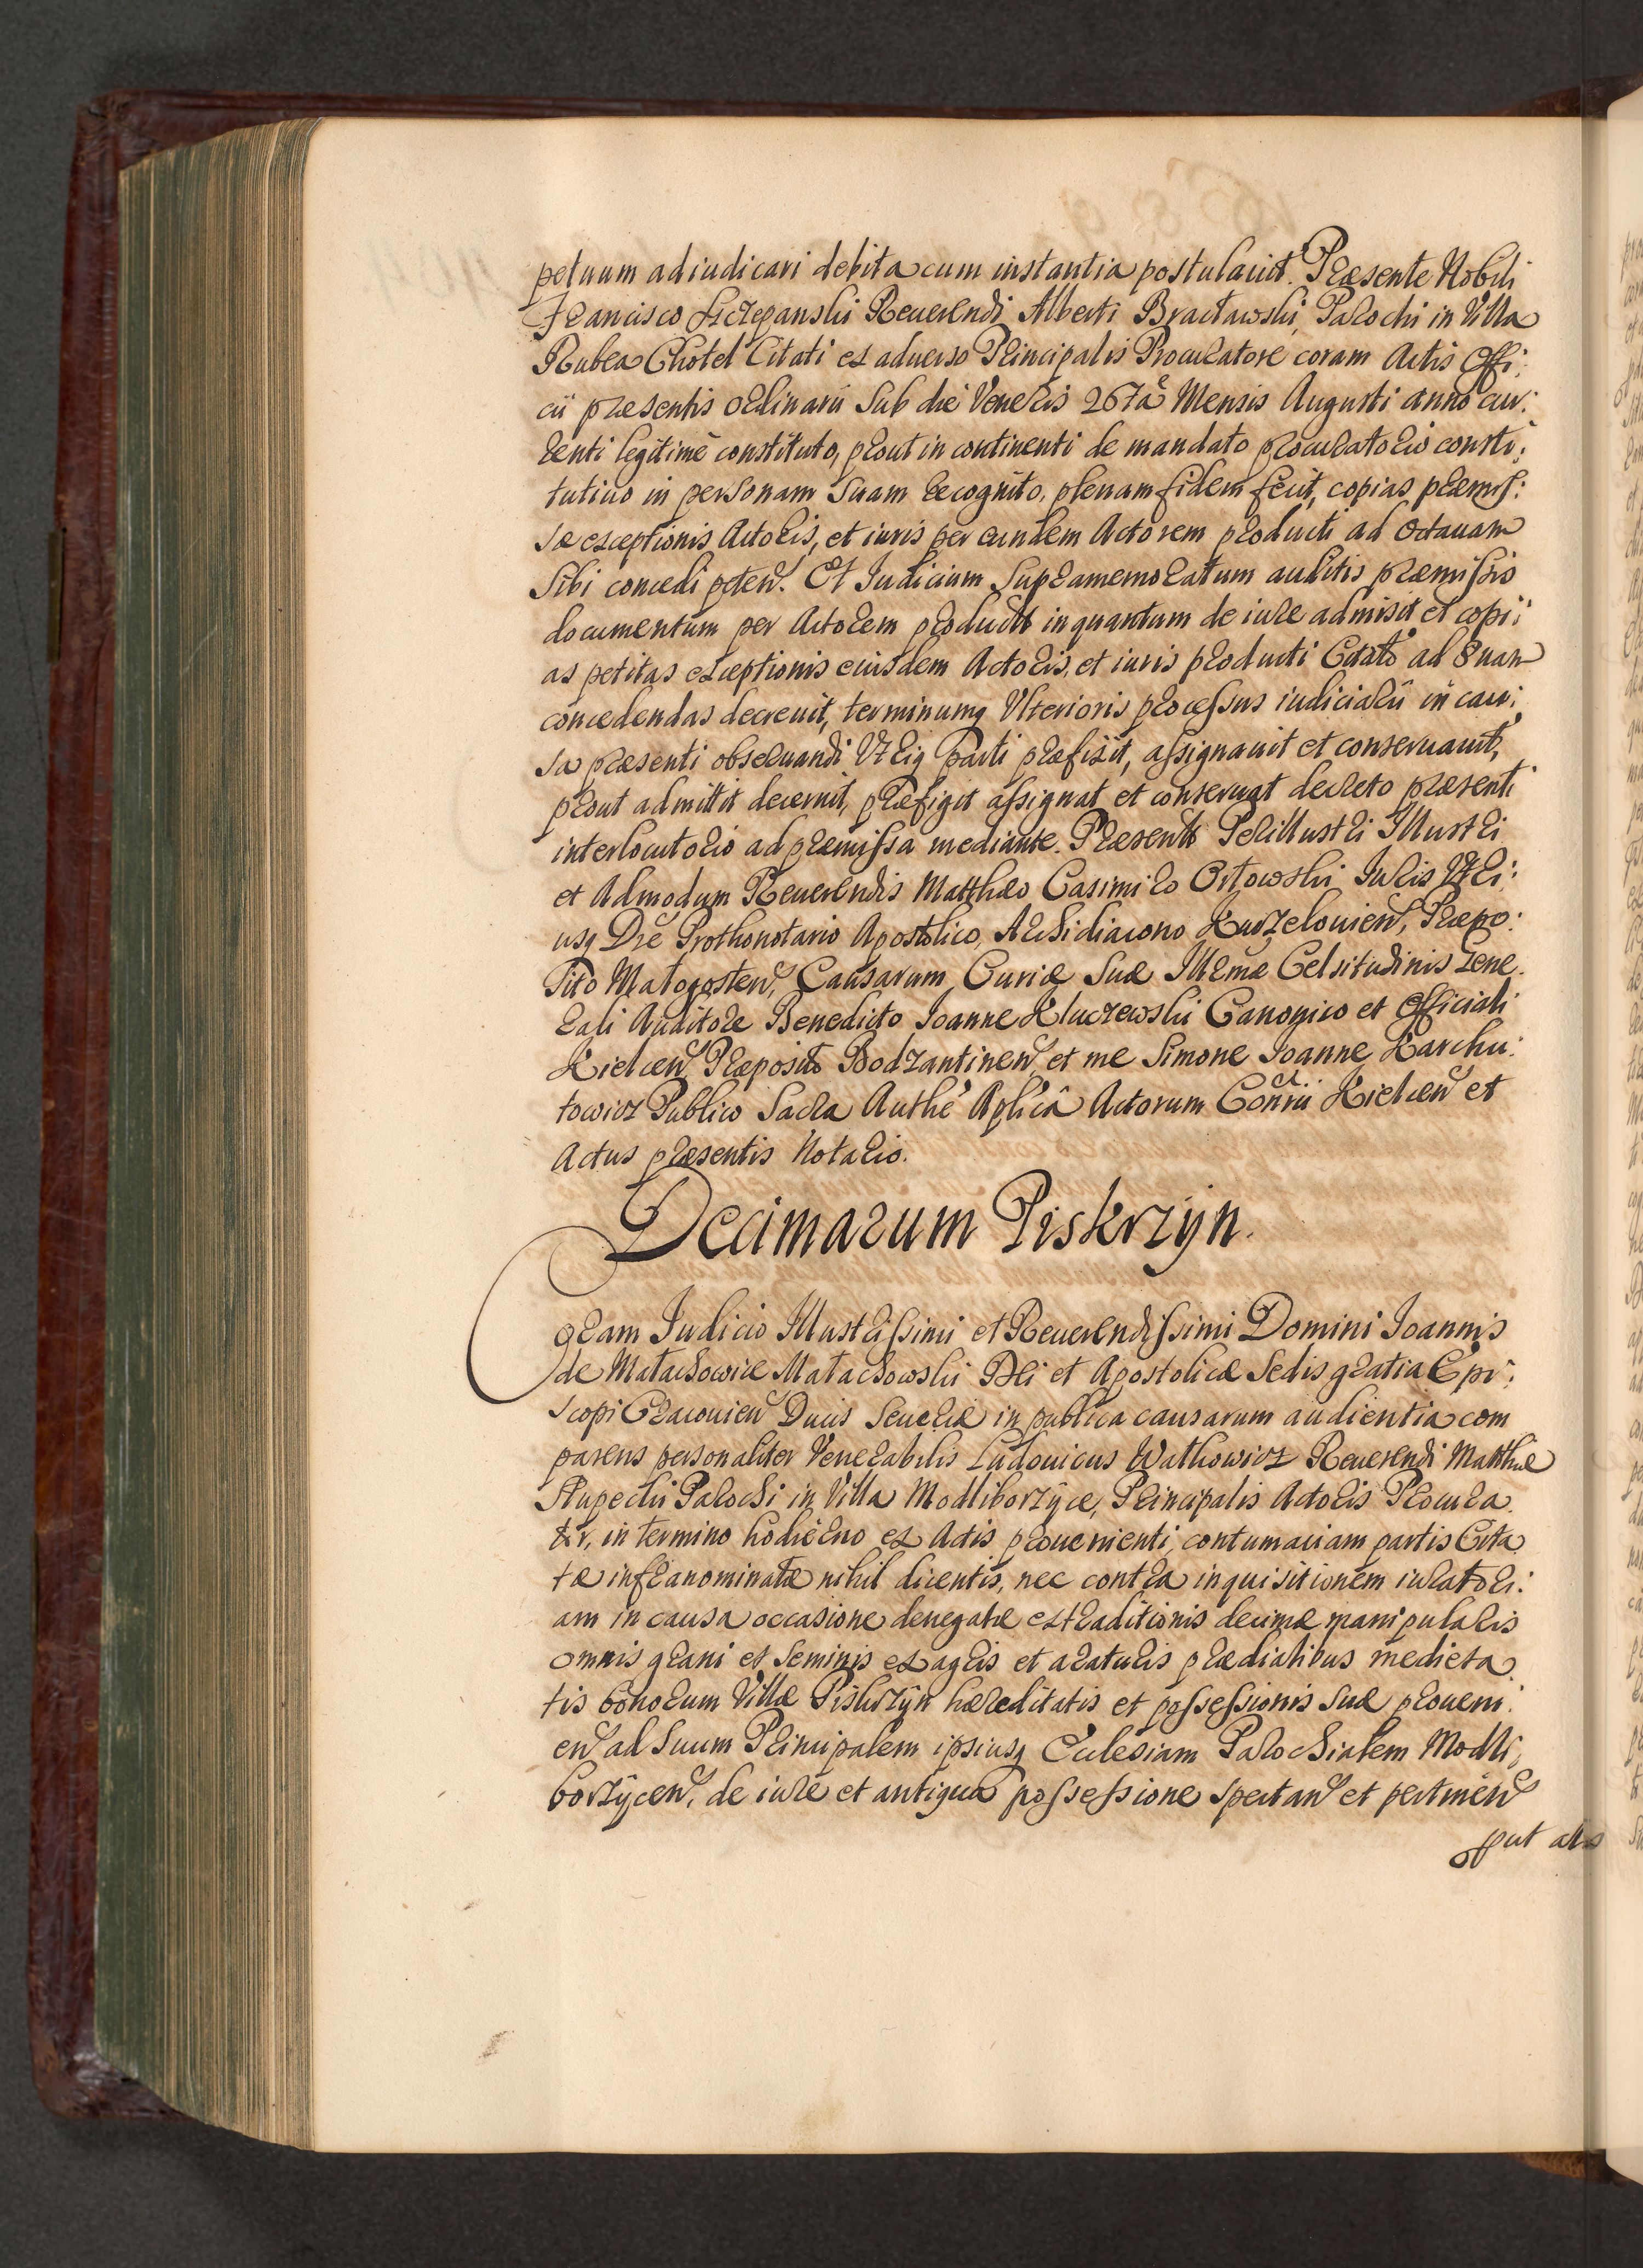 petuum adiudicari debita cum instantia postulauit. Præsente Nobili
Francisco Szczepanski Reuerendi Alberti Bractawski, Parochi in Villa
Rubea Chotel Citati ex aduerso Principalis Procuratore coram Actis Offi:
cii præsentis ordinarii sub die Veneris 26ta Mensis Augusti anno cur:
renti legitimè constituto, prout in continenti de mandato procuratorio consti:
tutiuo in personam suam recognito, plenam fidem fecit, copias præmis:
sæ exceptionis Actoris, et iuris per eundem Actorem producti ad octauam
sibi concedi peteñ. Et Iudicium supramemoratum auditis præmissis
documentum per Actorem productũ inquantum de iure admisit et copi:
as petitas exceptionis eiusdem Actoris, et iuris producti Citato ad 8uam
concedendas decreuit, terminumq Vlterioris processus iudiciarii in cau:
sa præsenti obseruandi Vtriq parti præfixit, assignauit et conseruauit,
prout admittit decernit, præfigit assignat et conseruat decreto præsenti
interlocutorio ad præmissa mediante. Præsentib Perillustri Illustri
et Admodum Reuerendis Matthæo Casimiro Ortowski Iuris Vtri:
usq Dre Prothonotario Apostolico, Archidiacono Kurzelouieñ, Præpo:
sito Matogosteñ, Causarum Curiæ Suæ Illrmæ Celsitudinis Gene
rali Auditore Benedicto Ioanne Kluczewski Canonico et Officiali
Kielceñ Præposito Bodzantineñ et me Simone Ioanne Karchu:
towicz Publico Sacra Authe Aplicâ Actorum Conrii Kielceñ et
Actus præsentis Notario.
Decimarum Piskrzÿn.
Coram Iudicio Illustrissimi et Reuerendissimi Domini Ioannis
de Matachowice Matachowski Dei et Apostolicæ Sedis gratia Epi:
scopi Cracouieñ Ducis Seueriæ in publica causarum audientia com
parens personaliter Venerabilis Ludouicus Watkowicz Reuerendi Matthiæ
Stupecki Parochi in Villa Modliborzÿce, Principalis Actoris Procura
tor, in termino hodierno ex Actis proueniente, contumaciam partis Cita
tæ infranominatæ nihil dicentis, nec contra inquisitionem iuratori:
am in causa occasione denegatæ extraditionis decimæ manipularis
omnis grani et seminis ex agris et araturis prædialibus medieta
tis bonorum Villæ Piskrzÿn hæreditatis et possessionis suæ proueni:
eñ ad suum Principalem ipsiusq Ecclesiam Parochialem Modli,
borzÿceñ, de iure et antiqua possessione spectañ et pertineñ
put als